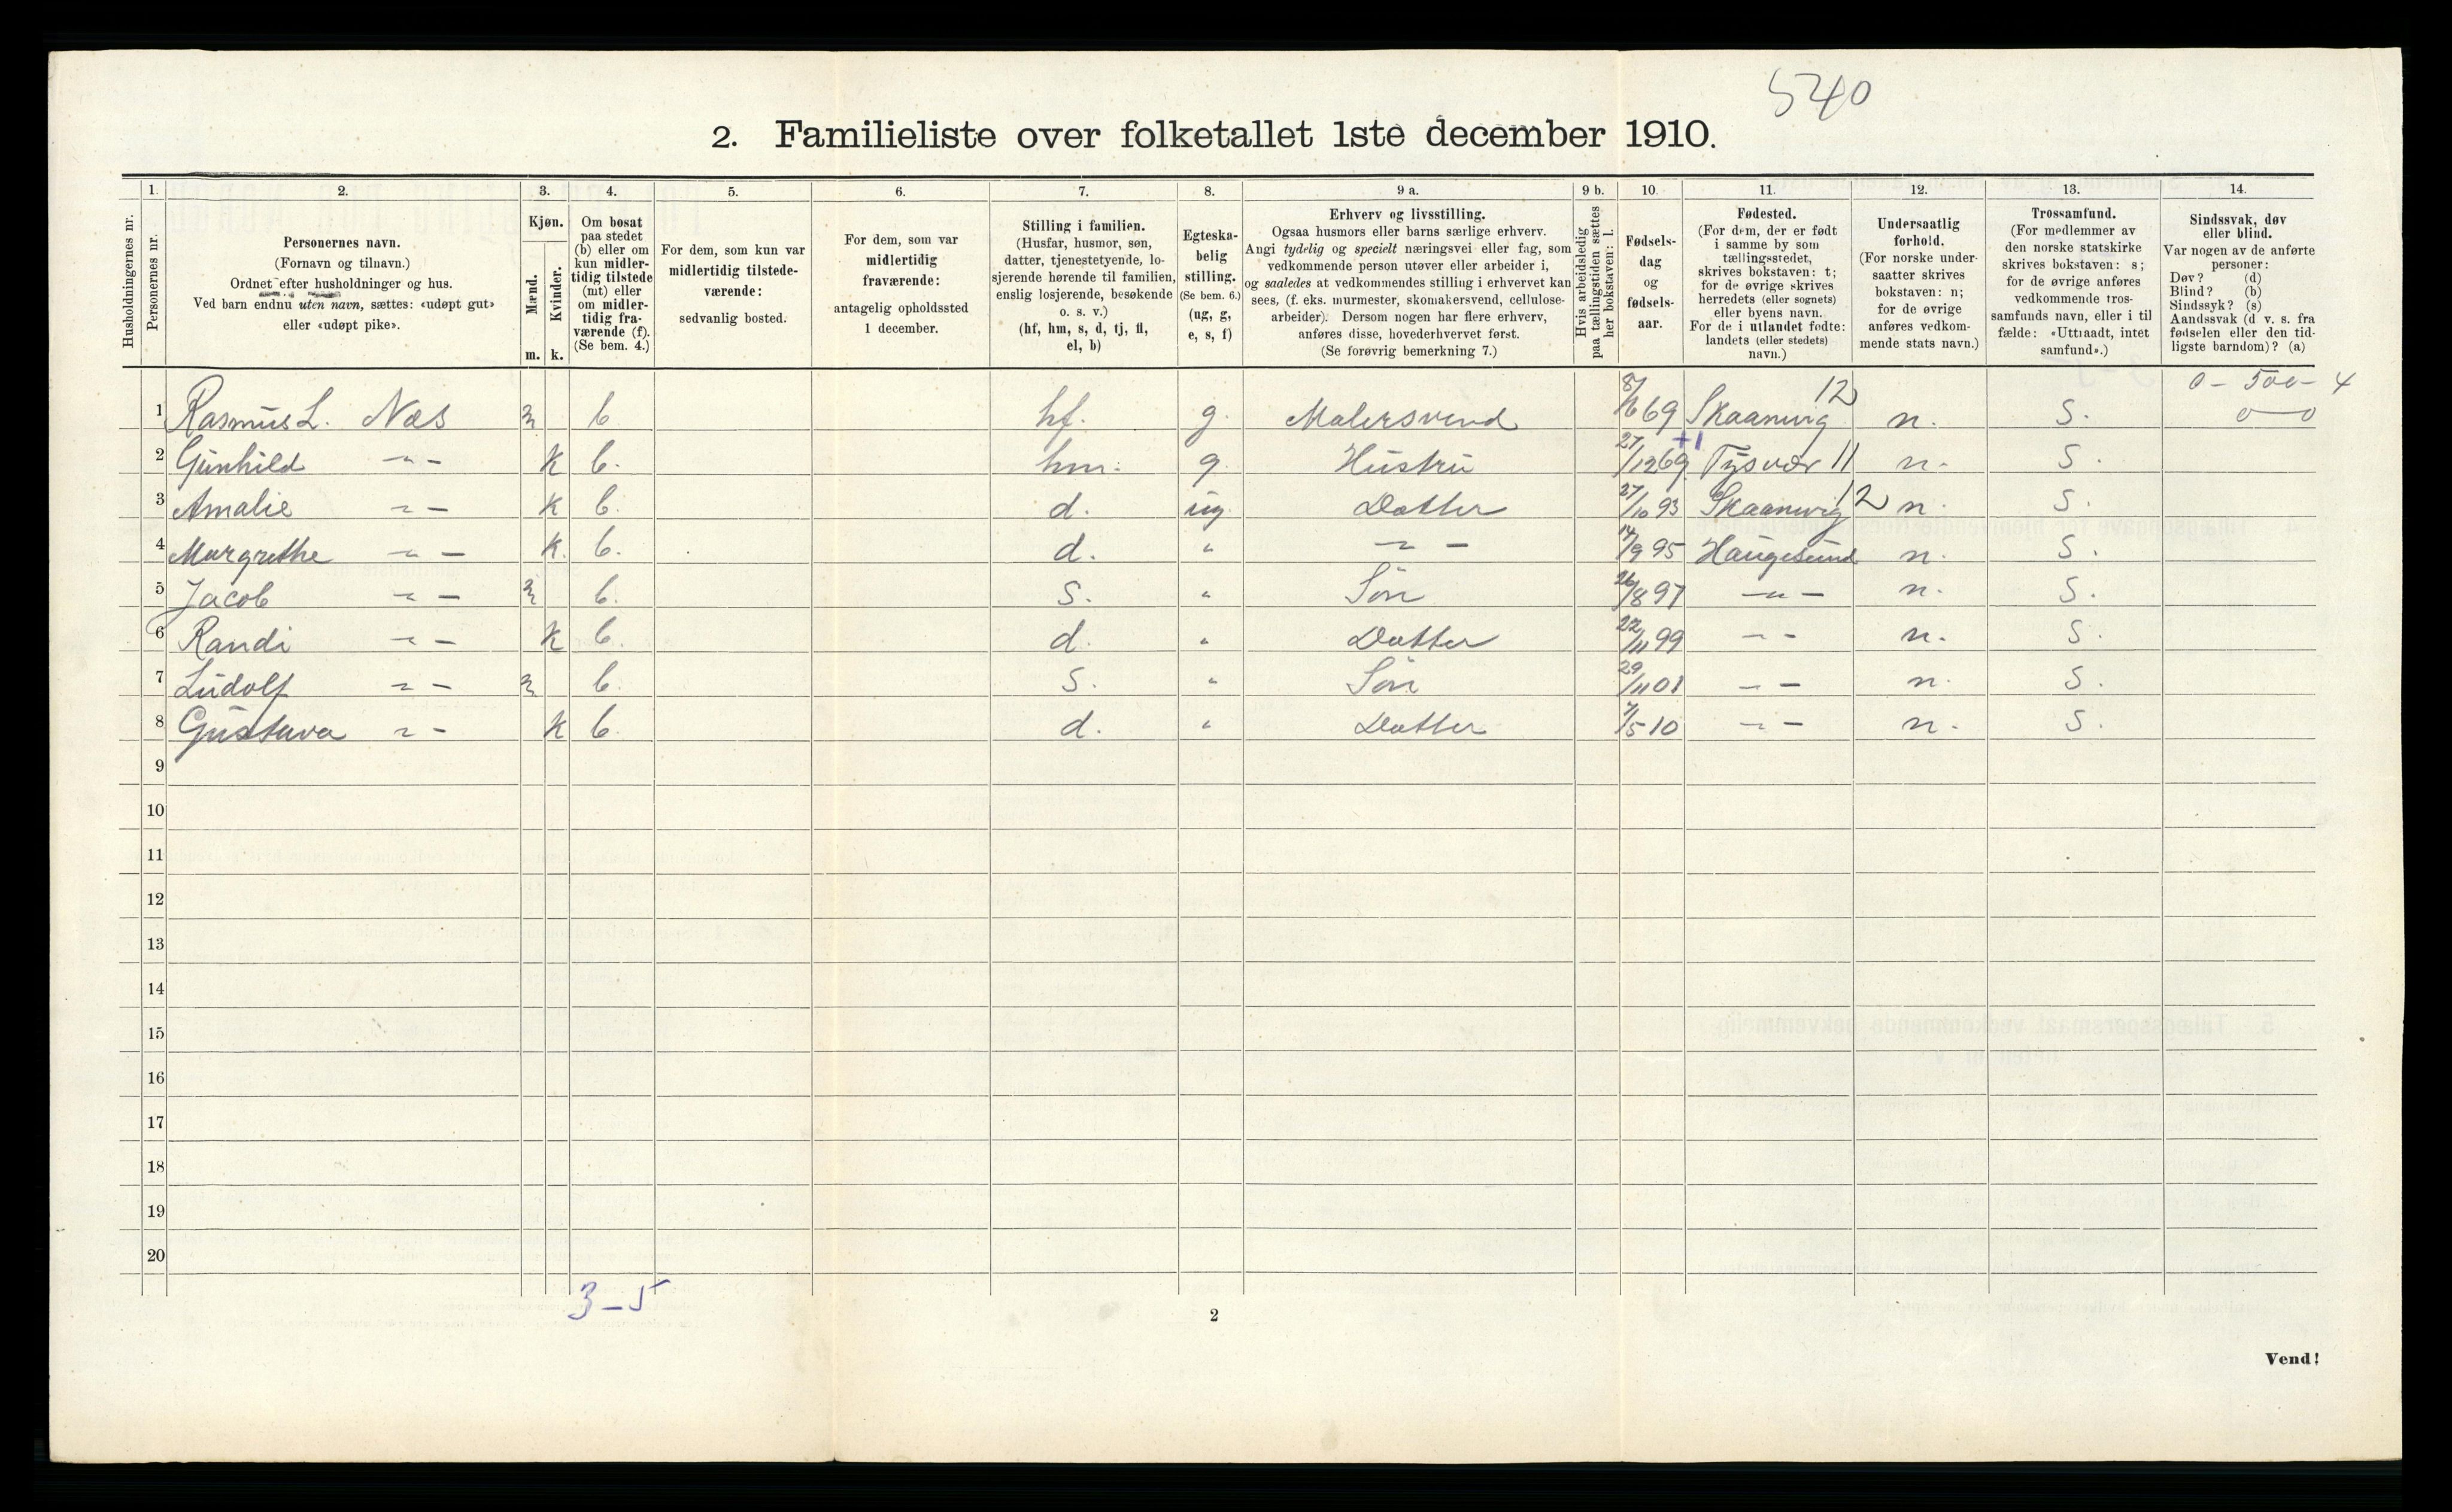 540
2. Familieliste over folketallet 1ste december 1910.
1. 2. 3. 4. 5. 6. 7. 8. 9 a. 9 b. 10. 11. 12. 13. 14.
Husholdningernes nr.
Personernes nr.
Personernes navn.
(Fornavn og tilnavn.)
Ordnet efter husholdninger og hus.
Ved barn endnu uten navn, sættes: «udøpt gut»
eller «udøpt pike».
Kjøn.
Mænd.
Kvinder.
m. k.
Om bosat
paa stedet
(b) eller om
kun midler-
tidig tilstede
(mt) eller
om midler-
tidig fra-
værende (f).
(Se bem. 4.)
For dem, som kun var
midlertidig tilstede-
værende:
sedvanlig bosted.
For dem, som var
midlertidig
fraværende:
antagelig opholdssted
1 december.
Stilling i familien.
(Husfar, husmor, søn,
datter, tjenestetyende, lo-
sjerende hørende til familien,
enslig losjerende, besøkende
o. s. v.)
(hf, hm, s, d, tj, fl,
el, b)
Egteska-
belig
stilling.
(Se bem. 6.)
(ug, g,
e, s, f)
Erhverv og livsstilling.
Ogsaa husmors eller barns særlige erhverv.
Angi tydelig og specielt næringsvei eller fag, som
vedkommende person utøver eller arbeider i,
og saaledes at vedkommendes stilling i erhvervet kan
sees, (f. eks. murmester, skomakersvend, cellulose-
arbeider). Dersom nogen har flere erhverv,
anføres disse, hovederhvervet først.
(Se forøvrig bemerkning 7.)
Hvis arbeidsledig
paa tællingstiden sættes
her bokstaven: l.
Fødsels-
dag
og
fødsels-
aar.
Fødested.
(For dem, der er født
i samme by som
tællingsstedet,
skrives bokstaven: t;
for de øvrige skrives
herredets (eller sognets)
eller byens navn.
For de i utlandet fødte:
landets (eller stedets)
navn.)
Undersaatlig
forhold.
(For norske under-
saatter skrives
bokstaven: n;
for de øvrige
anføres vedkom-
mende stats navn.)
Trossamfund.
(For medlemmer av
den norske statskirke
skrives bokstaven: s;
for de øvrige anføres
vedkommende tros-
samfunds navn, eller i til
fælde: «Uttraadt, intet
samfund».)
Sindssvak, døv
eller blind.
Var nogen av de anførte
personer:
Døv? (d)
Blind? (b)
Sindssyk? (s)
Aandssvak (d v. s. fra
fødselen eller den tid-
ligste barndom)? (a)
0 - 500 - 4
1 Rasmus L. Næs m b hf. g. Malersvend 8/6 69 Skaanevig 12 n. S. 0—0
2 Gunhild -"- k b. hm. g. Hustru 27/12 69 +1 Tysvær 11 n. S.
3 Amalie -"- k b. d. ug. Datter 27/10 93 Skaanevig 12 n. S.
4 Margrethe -"- k. b. d. " -"- 14/9 95 Haugesund n. S.
5 Jacob -"- m b. s. " Søn 26/8 97 -"- n. S.
6 Randi -"- k b. d. " Datter 22/11 99 -"- n. S.
7 Ludolf -"- m b. s. " Søn 29/11 01 -"- n. S.
8 Gustava -"- k b. d. " Datter 7/5 10 -"- n. S.
9
10
11
12
13
14
15
16
17
18
19
20
3-5
2
Vend!